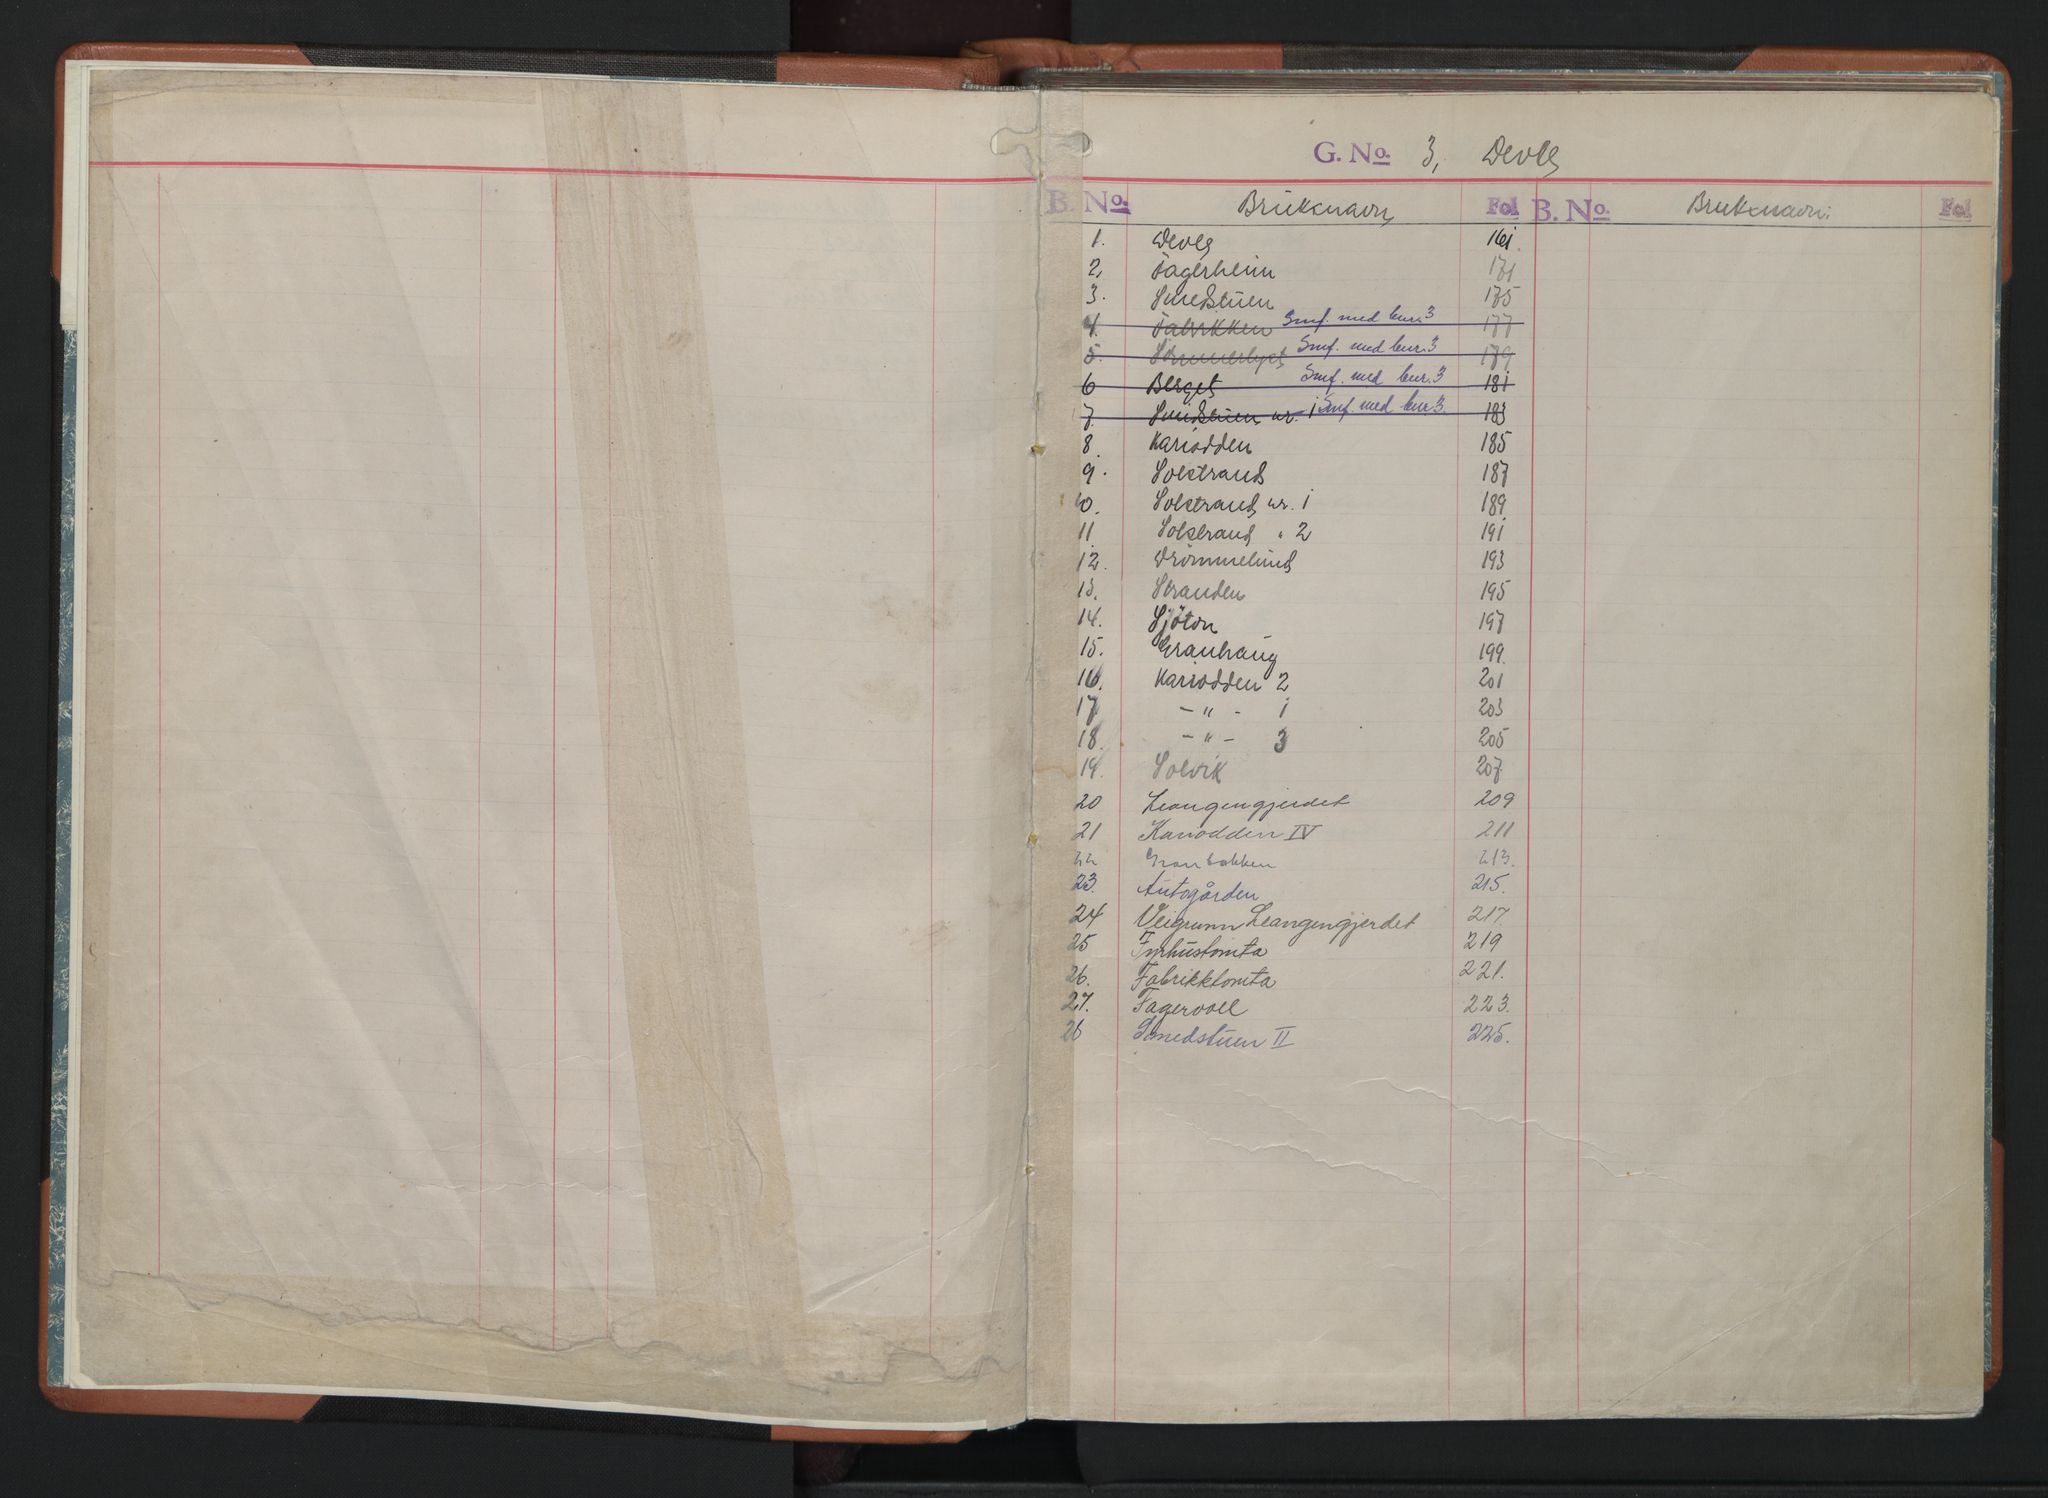 G. No. 3, Devle
B. No. Bruksnavn Fol B. No. Bruksnavn: Fol
1. Devle 161.
2, Fagerheim 171
3. Smedstuen 175
4. Fabrikken Smf. med bnr. 3 177
5. Sommerlyst Smf. med bnr. 3 179
6 Berget Smf. med bnr. 3 181
7. Smedstuen nr. 1 Smf. med bnr. 3. 183
8. Kariodden 185
9. Solstrand 187
10. Solstrand nr. 1 189
11. Solstrand " 2 191
12. Drømmelund 193
13. Stranden 195
14. Sjöton 197
15. Granhaug 199.
16. Kariodden 2 201
17 - " - 1 203
18. - " - 3 205
19. Solvik 207
20 Leangengjerdet 209
21 Kariodden IV 211
22 Granbakken 213.
23. Autogården 215.
24 Veigrunn Leangengjerdet 217
25 Fyrhustomta 219
26. Fabrikktomta 221.
27. Fagervoll 223.
28 Smedstuen II 225.